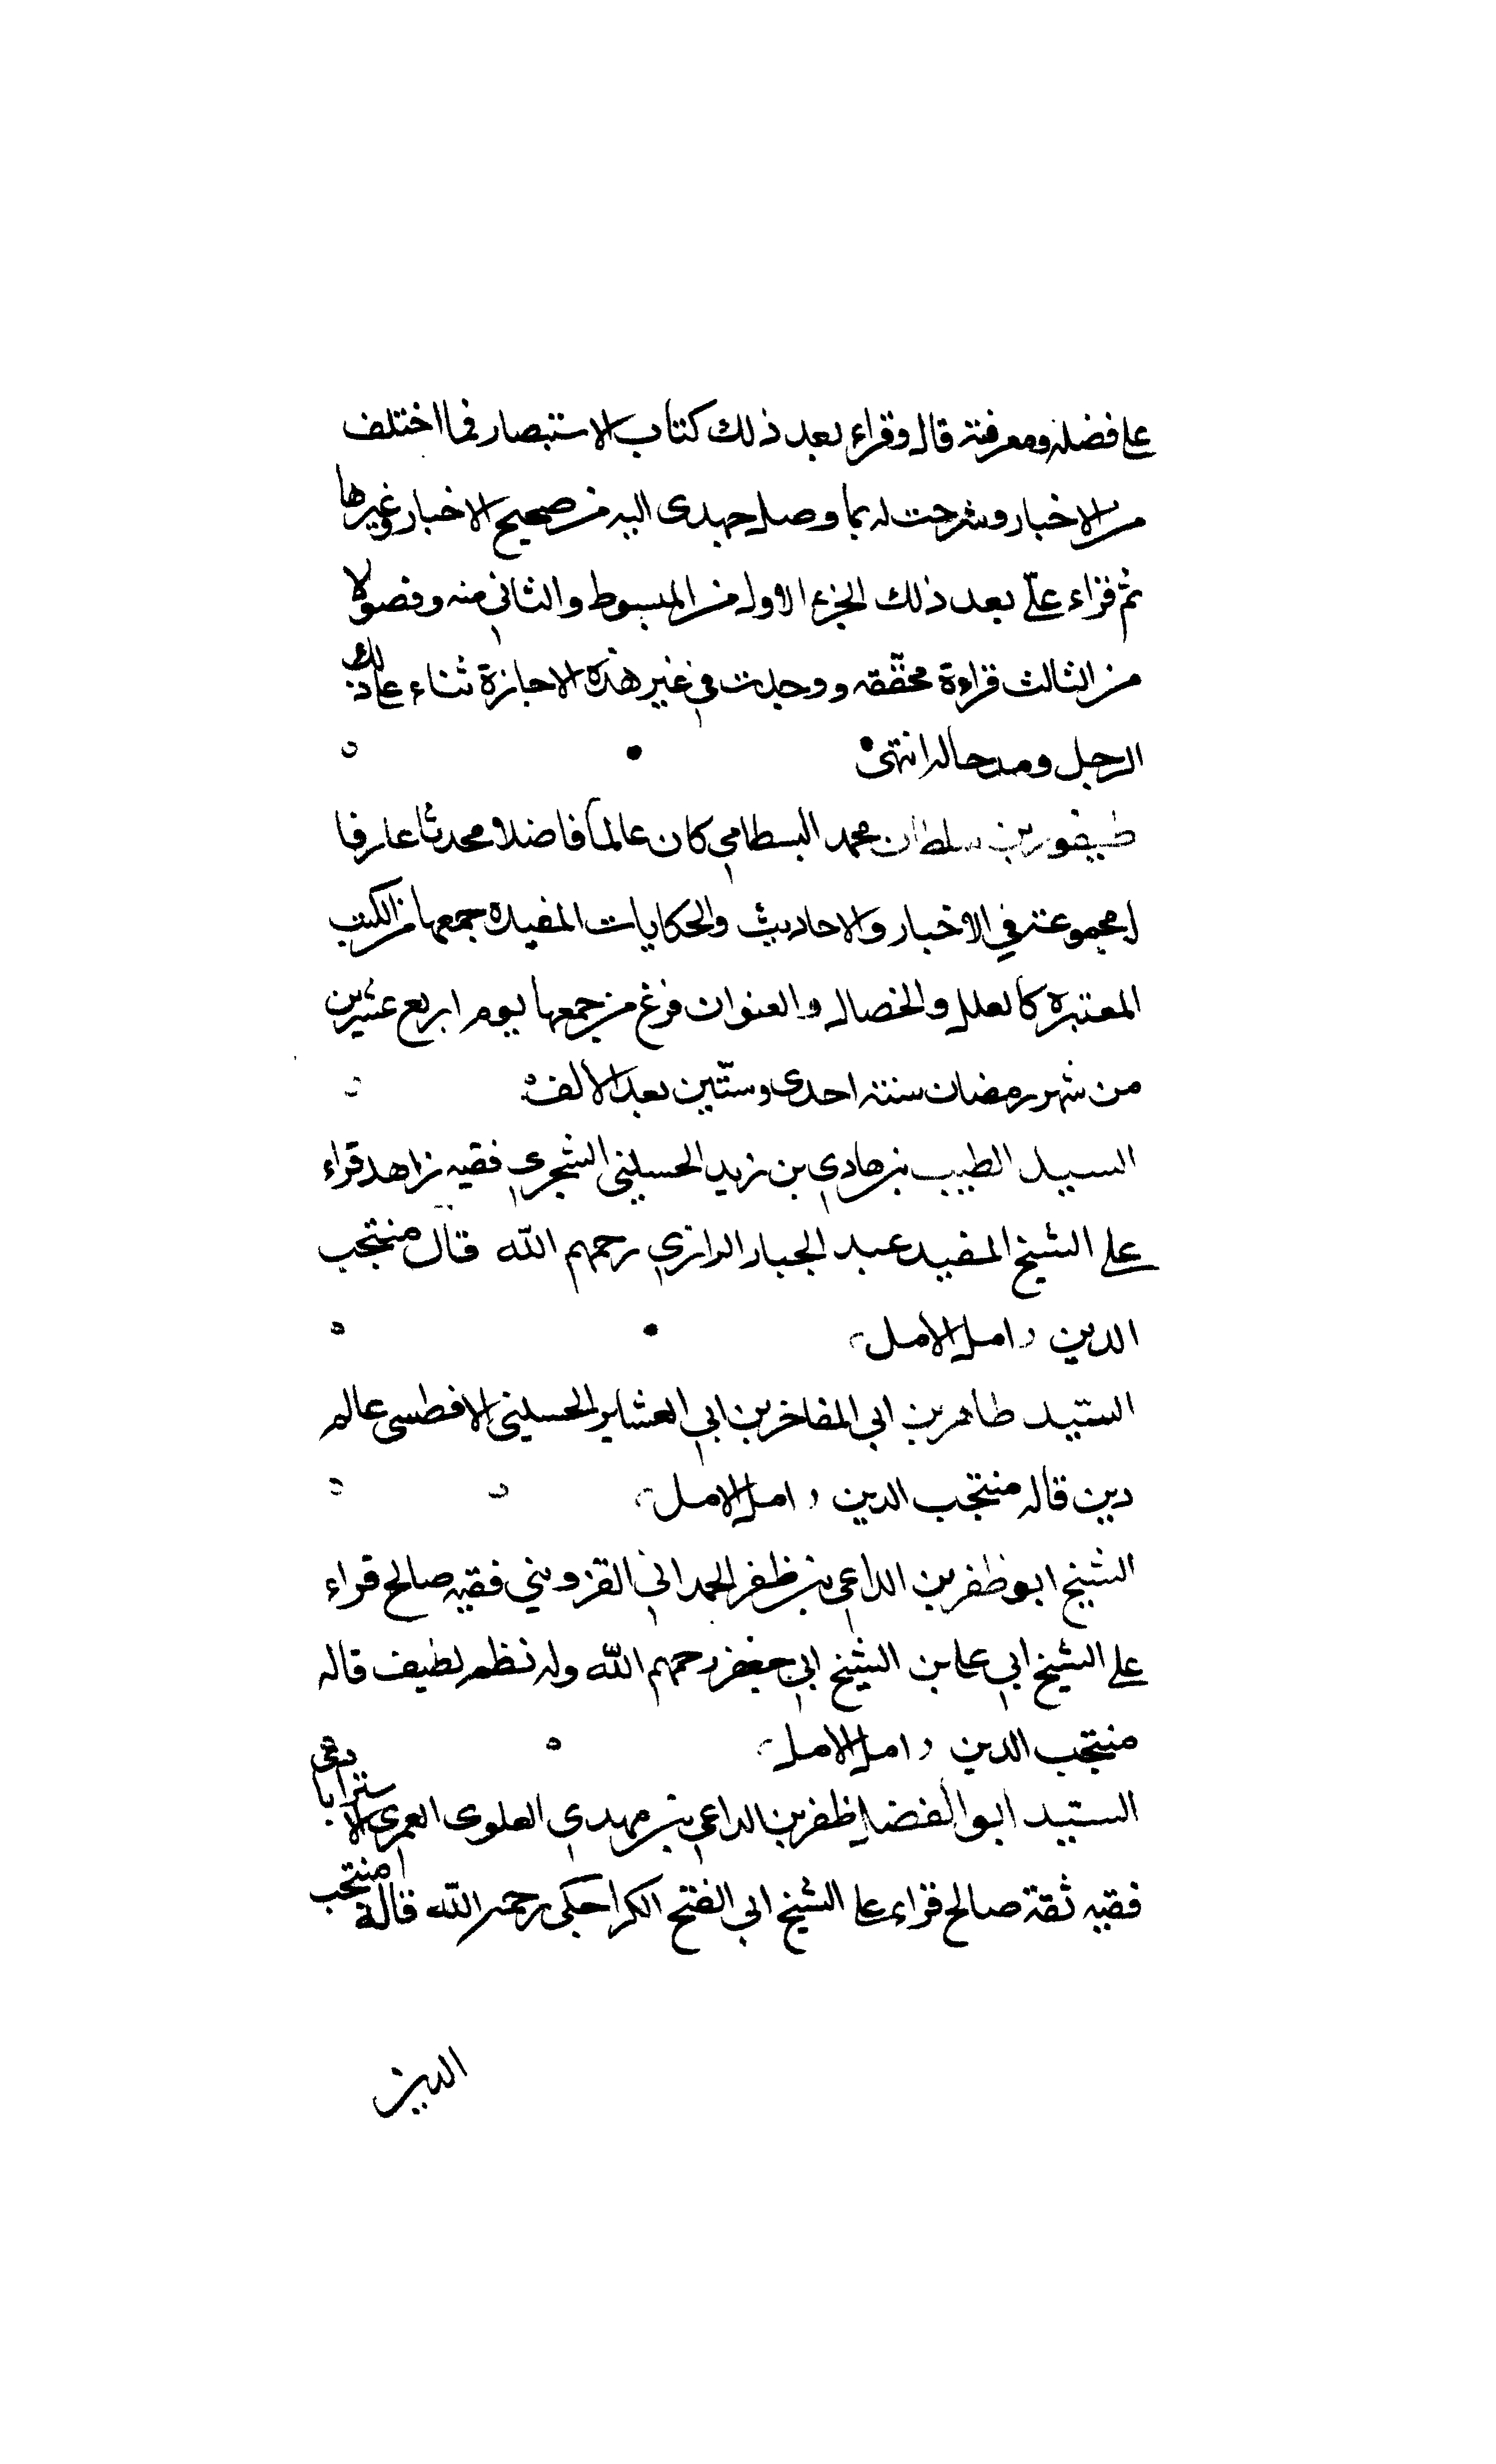 على فضله ومعرفته قال وقراء بعد ذلك كتاب الاستبصار فيما اختلف
من الاخبار وشرحت له بما وصل جهدى اليه من صحيح الاخبار وغيرها
ثم قراء علىّ بعد ذلك الجزء الاول من المبسوط والثاني منه وفصولا
من الثالث قراءة محقّقه ووجدت في غير هذه الاجازة ثناء على ذلك
الرجل ومدحا له انتهى
طيفور بن سلطان محمد البسطامي كان عالماً فاضلا محدثا عارفا
له مجموعة في الاخبار والاحاديث والحكايات المفيدة جمعها من الكتب
المعتبرة كالعلل والخصال والعنوان فرغ من جمعها يوم اربع عشرين
من شهر رمضان سنة احدى وستّين بعد الالف
السيد الطيب بن هادي بن زيد الحسيني الشجري فقيه زاهد قراء
على الشيخ المفيد عبد الجبار الرازي رحمهم الله قال منتجب
الدين امل الامل
السيّد طاهر بن ابي المفاخر بن ابي العشاير الحسيني الافطسى عالم
دين قاله منتجب الدين امل الامل
الشيخ ابو ظفر بن الداعي بن ظفر الحمداني القزويني فقيه صالح قراء
على الشيخ ابي على بن الشيخ ابي جعفر رحمهم الله وله نظم لطيف قاله
منتجب الدين امل الامل
السيّد ابو الفضل ظفر بن الداعي بن مهدي العلوى العمرى الاسترابادى
فقيه ثقة صالح قراء على الشيخ ابي الفتح الكراجكى رحمه الله قاله منتجب
الدين